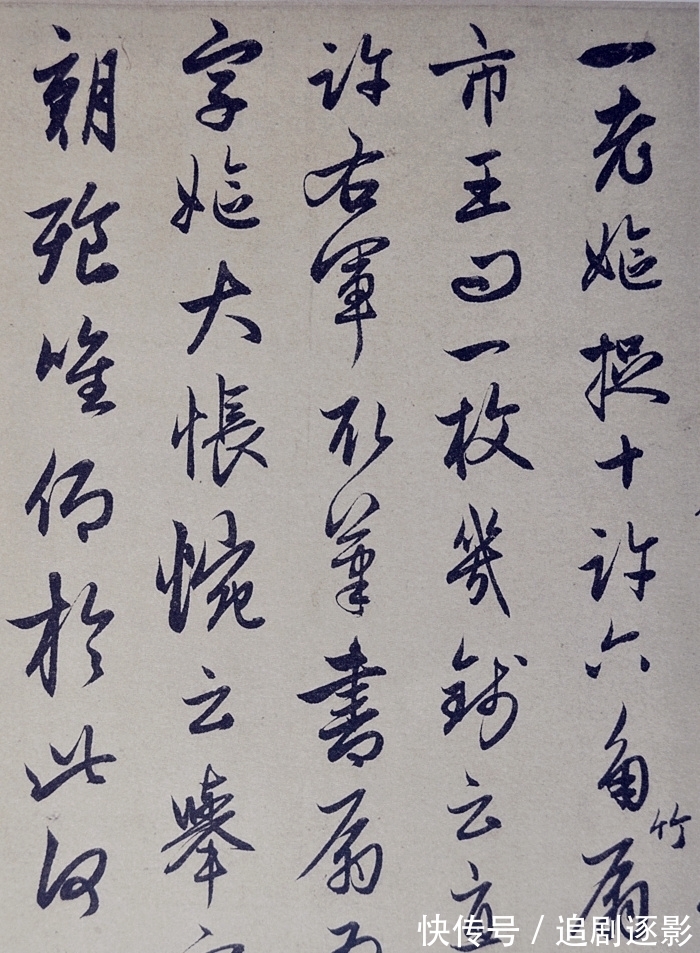 一老妪捉十許六角竹扇
市王问一枚幾錢云直
許右軍取筆書扇
字妪大悵惋云舉
朝飱唯仰於此何
快传号 / 追剧逐影